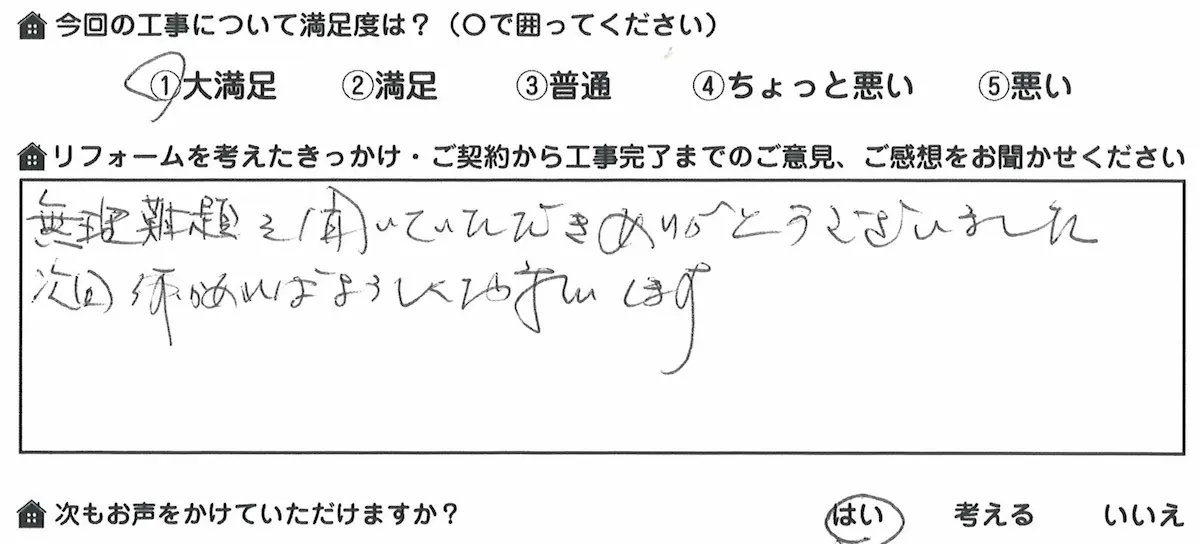 今回の工事について満足度は？（〇で囲ってください）
①大満足 ②満足 ③普通 ④ちょっと悪い ⑤悪い
リフォームを考えたきっかけ・ご契約から工事完了までのご意見、ご感想をお聞かせください
無理難題を聞いていただきありがとうございました
次回 があればよろしくお します
次もお声をかけていただけますか？ はい 考える いいえ